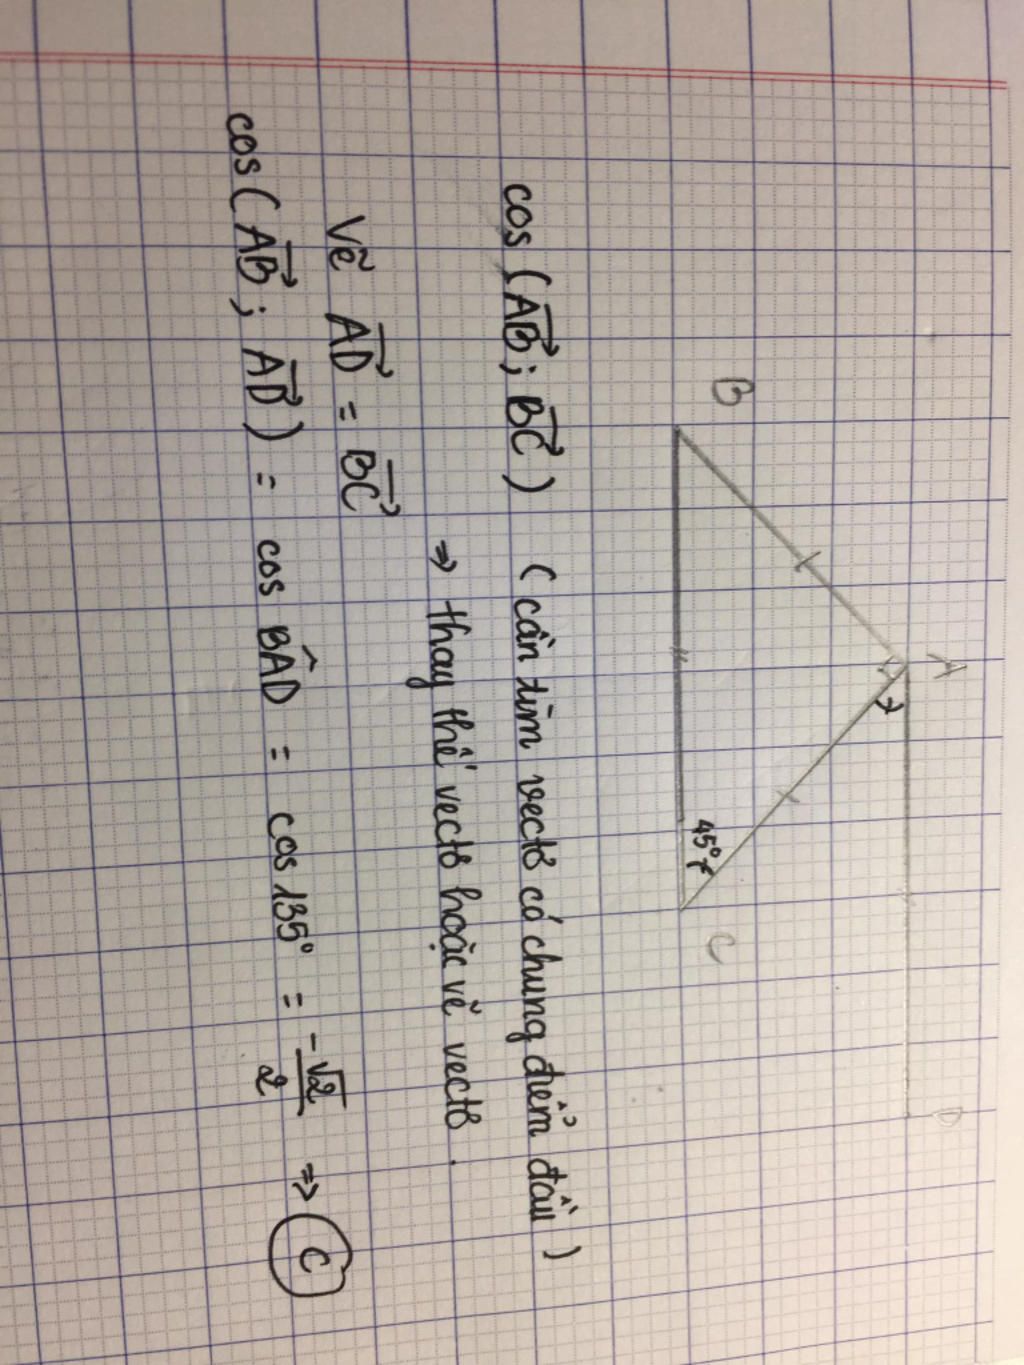 A
D
B
45°
C
cos (AB→; BC→) (cần tìm vectơ có chung điểm đầu)
⇒ thay thế vectơ hoặc vẽ vectơ.
Vẽ AD→ = BC→
cos (AB→; AD→) = cos BAD̂ = cos 135° = -√2/2 ⇒ C